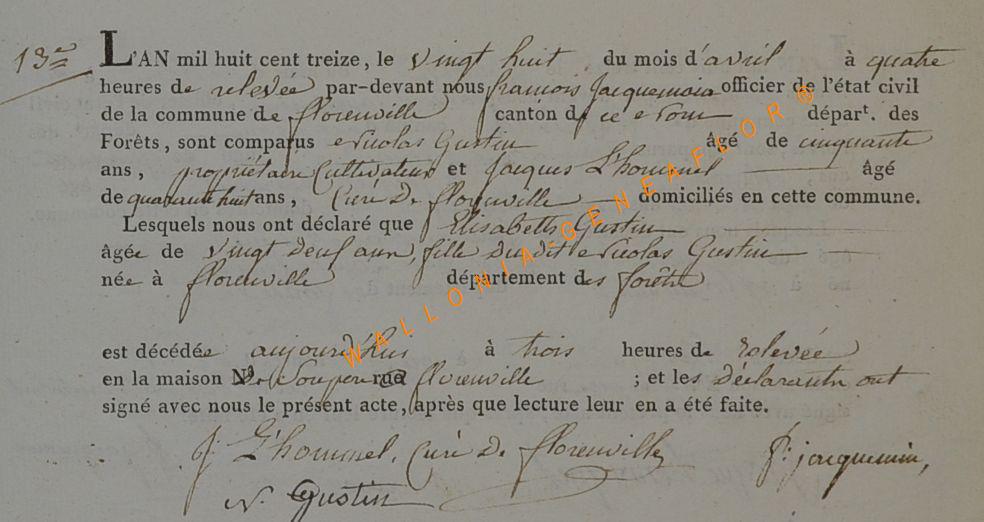 13e
L'AN mil huit cent treize, le vingt huit du mois d'avril à quatre
heures de relevée par-devant nous françois Jacquemin officier de l'état civil
de la commune de florenville canton de ce nom départ. des
Forêts, sont comparus Nicolas Gustin âgé de cinquante
ans, propriétaire Cultivateur et Jacques L'hommel âgé
de quarante huit ans, Curé De florenville domiciliés en cette commune.
Lesquels nous ont déclaré que Elisabeth Gustin
âgée de vingt deux ans, fille Du dit Nicolas Gustin
née à florenville département des forêts
est décédée aujourd'hui à trois heures de relevée
en la maison De Son pere florenville ; et les déclarants ont
signé avec nous le présent acte, après que lecture leur en a été faite.
J: L'hommel, Curé De florenville f: jacquemin,
N. Gustin
WALLONIA-GENEAFLOR®